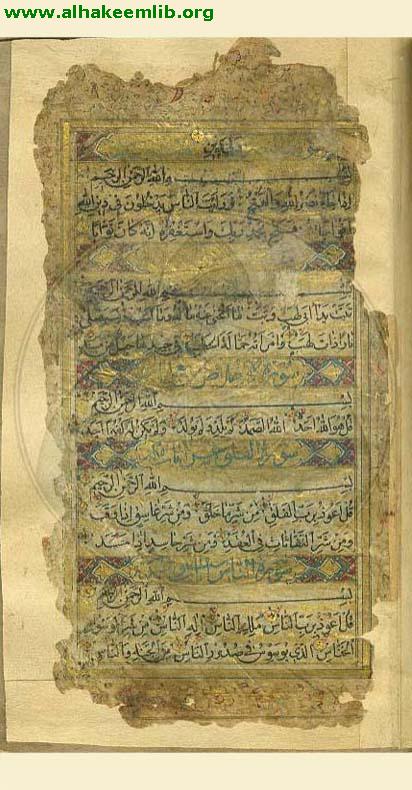 www.alhakeemlib.org
بسم الله الرحمن الرحيم
اذا جاء نصر الله والفتح ورايت الناس يدخلون فى دين الله
افواجا فسبح بحمد ربك واستغفره انه كان توابا
بسم الله الرحمن الرحيم
تبت يدا ابى لهب وتب ما اغنى عنه ماله وما كسب سيصلى
نارا ذات لهب وامراته حمالة الحطب فى جيدها حبل من مسد
سورة الاخلاص
بسم الله الرحمن الرحيم
قل هو الله احد الله الصمد لم يلد ولم يولد ولم يكن له كفوا احد
سورة الفلق خمس ايات
بسم الله الرحمن الرحيم
قل اعوذ برب الفلق من شر ما خلق ومن شر غاسق اذا وقب
ومن شر النفاثات فى العقد ومن شر حاسد اذا حسد
سورة الناس
بسم الله الرحمن الرحيم
قل اعوذ برب الناس ملك الناس اله الناس من شر الوسواس
الخناس الذى يوسوس فى صدور الناس من الجنة والناس